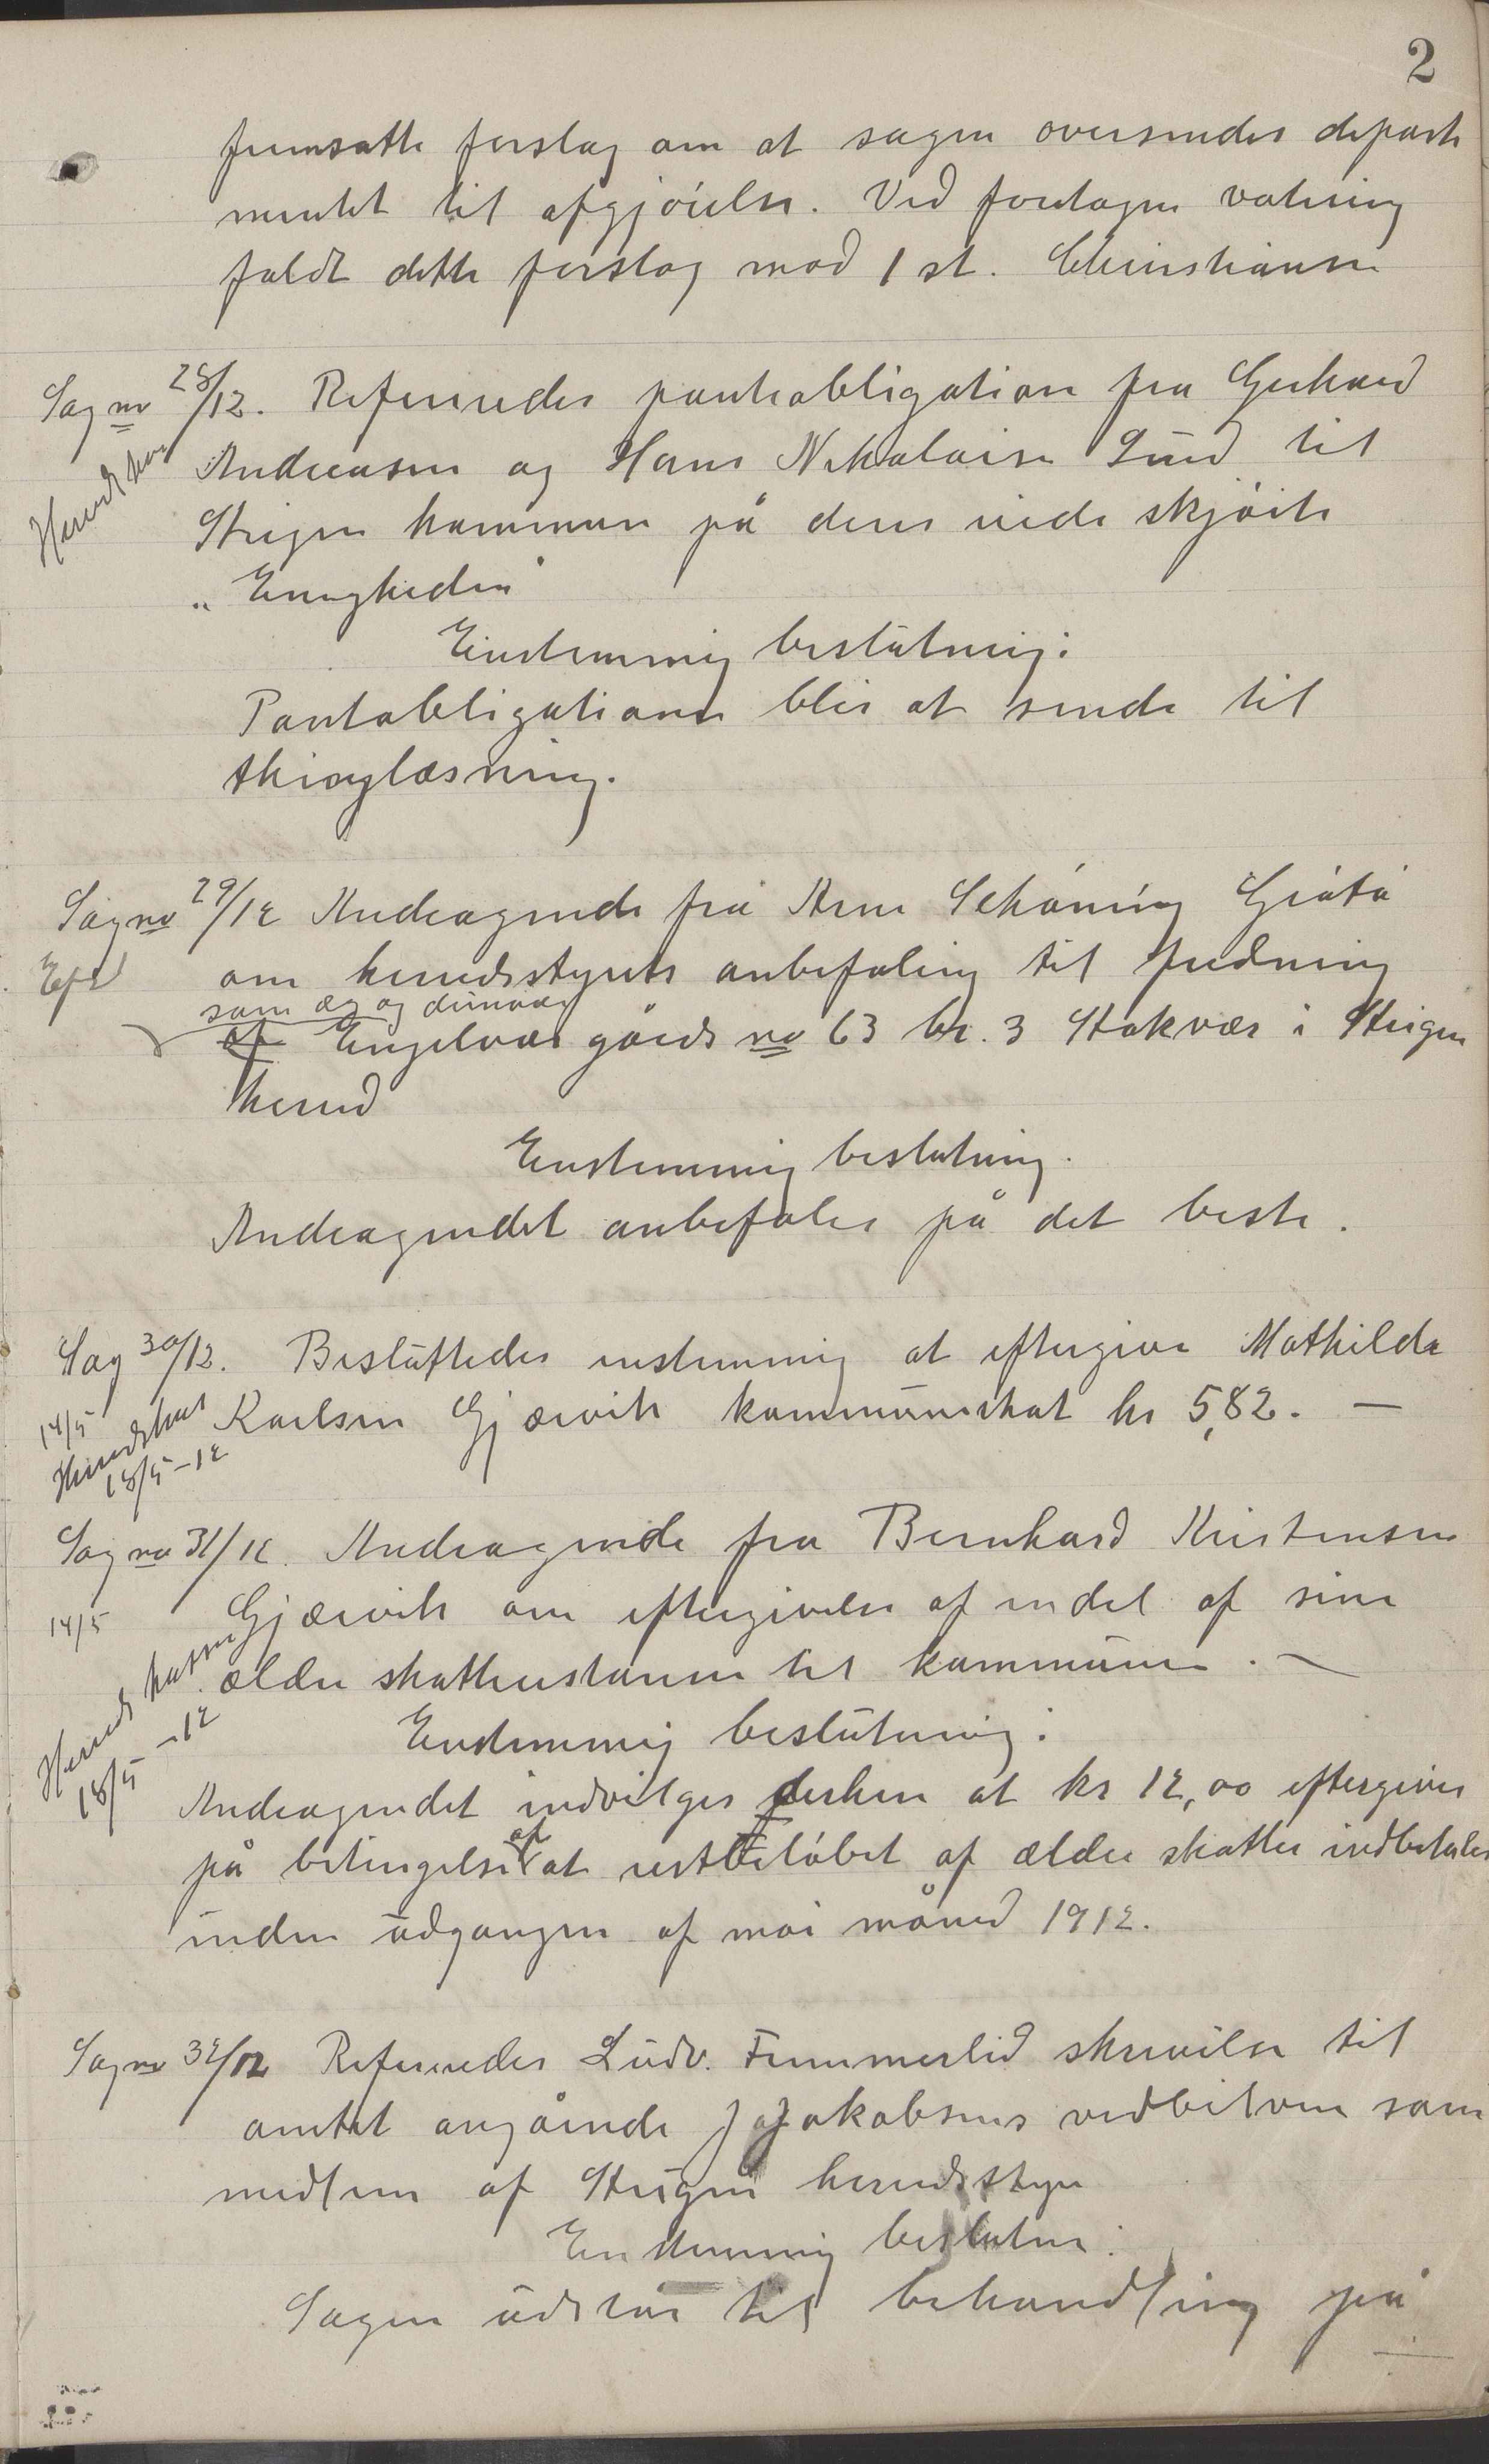 2
fremsatte forslag om at sagen oversendes departe
mentet til afgjørelse. Ved foretagen votering
faldt dette forslag mod 1 st. Christiansen
Sag no 28/12. Refereredes panteobligation fra Gerhard
Andreasen og Hans Nikolaisen Lund til
Steigen kommune på deres eiende skjøite
„Enigheden"
Enstemmig beslutning:
Pantobligationen blir at sende til
thinglæsning.
Sag no 29/12 Andragende fra Arne Schøning Grøtø
Efs
om herredsstyrets anbefaling til fredning
som æg og dunvær
af Engelvær gårds no 63 br. 3 Stokvær i Steigen
herred
Enstemmig beslutning.
Andragendet anbefales på det beste.
Sag 30/12. Besluttedes enstemmig at eftergive Mathilde
14/5
Karlsen Gjærvik kommuneskat kr 5,82. —
Herredskas
18/5-12
Sag no 31/12. Andragende fra Bernhard Kristensen
14/5
Gjærvik om eftergivelse af endel af sine
ældre skatterestancer til kommunen. —
Herredskassen
18/5-12
Enstemmig beslutning:
Andragendet indvilges derhen at kr 12,00 eftergives
på betingelse af at restbeløbet af ældre skatter indbetales
inden udgangen af mai måned 1912.
Sag no 32/12 Refereredes Ludv. Fummerlid skrivelse til
amtet angående J Jakobsens vedbliven som
medlem af Steigen herredsstyre
Enstemmig beslutn:
Sagen udstår til behandling på